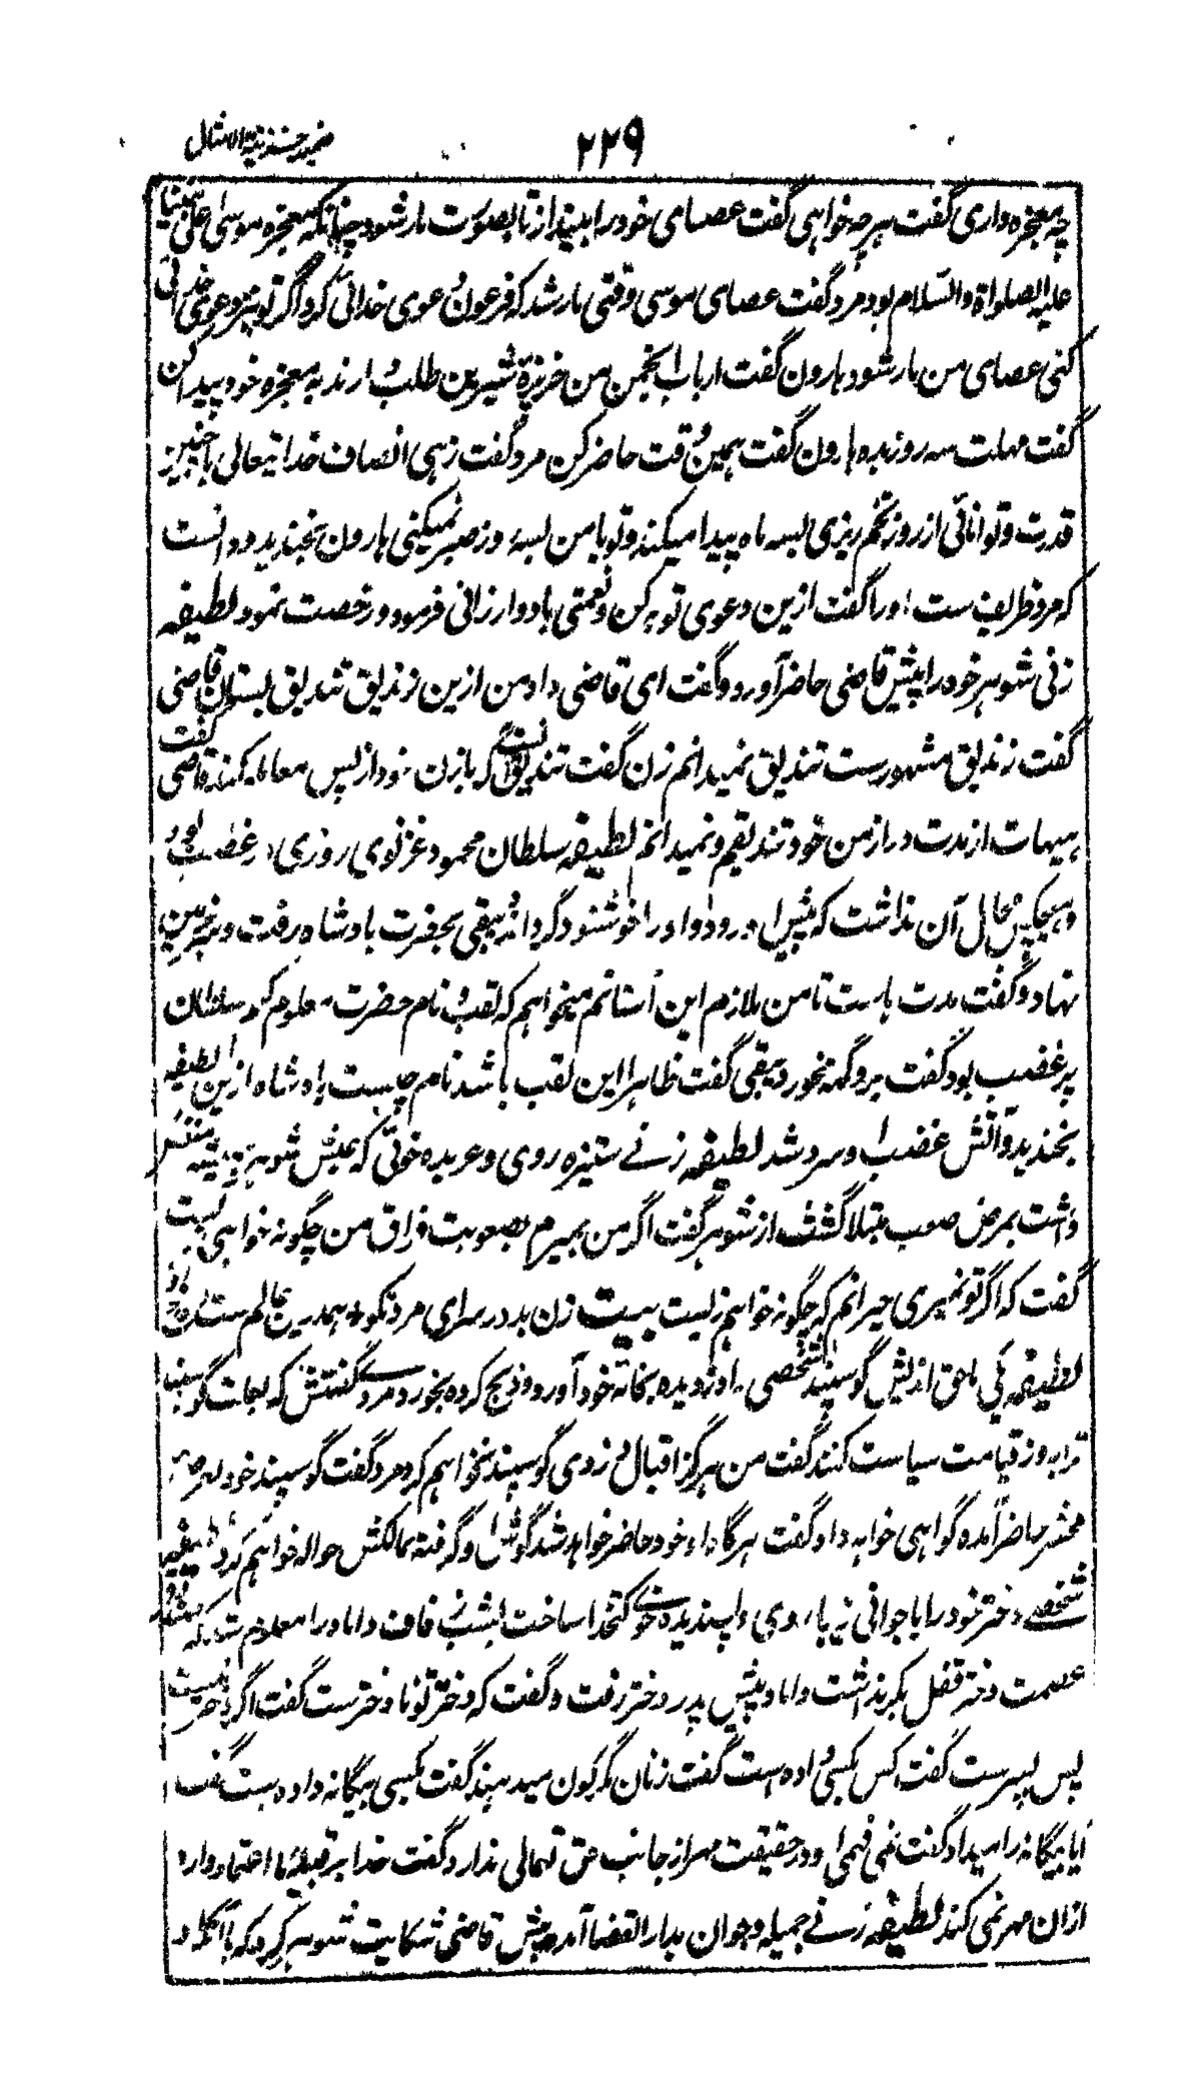 ۲۲۹
چه معجزه داری گفت هر چه خواهی گفت عصای خود را بینداز تا بصورت مار شود چنانکه معجزه موسی علی نبینا
علیه الصلواة والسلام بود مرد گفت عصای موسی وقتی مار شد که فرعون دعوی خدائی کرد اگر تو نیز دعوی خدائی
کنی عصای من مار شود هارون گفت ارباب انجمن من خربزهٔ شیرین طلب دارند به معجزه خود پیدا کن
گفت مهلت سه روز بده هارون گفت همین وقت حاضر کن مرد گفت زهی انصاف خدایتعالی با چنین
قدرت و توانائی از روز تخم ریزی بسه ماه پیدا میکند و تو با من بسه روز صبر نمیکنی هارون بخندید و دانست
که مرد ظریف ست اورا گفت ازین دعوی توبه کن و نعمتی باو ارزانی فرمود و رخصت نمود لطیفه
زنی شوهر خود را پیش قاضی حاضر آورد و گفت ای قاضی داد من ازین زندیق تندیق بستان قاضی
گفت زندیق مشهورست تندیق نمیدانم زن گفت تندیق آنست که با زن خود از پس معامله کند قاضی گفت
هیهات از مدت دراز من خود تندیقم و نمیدانم لطیفه سلطان محمود غزنوی روزی در غضب بود
و هیچکس مجال آن نداشت که پیش او رود و او را خوشنود گرداند بیهقی بحضرت بادشاه رفت و سر بر زمین
نهاد و گفت مدت هاست تا من ملازم این آستانم میخواهم که لقب و نام حضرت معلوم کنم سلطان
پر غضب بود گفت برو گهه نخور بیهقی گفت ظاهرا این لقب باشد نام چیست بادشاه ازین لطیفه
بخندید و آتش غضب او سرد شد لطیفه زنے ستیزه روی و عربده خوئی که عیش شوهر همیشه منغص
داشت بمرض صعب مبتلا گشت از شوهر گفت اگر من بمیرم بصعوبت فراق من چگونه خواهی زیست
گفت که اگر تو نمیری حیرانم که چگونه خواهم زیست بیت زن بد در سرای مرد نکو + همدرین عالم ست دوزخ او
لطیفه یکی ناحق اندیش گوسپند شخصی را دزدیده بخانهٔ خود آورد و ذبح کرده بخورد مردے گفتش که بجهت گوسپند
ترا بروز قیامت سیاست کنند گفت من هرگز اقبال دزدی گوسپند نخواهم کرد مرد گفت گوسپند خود بعرصهٔ
محشر حاضر آمده گواهی خواهد داد گفت هرگاه او خود حاضر خواهد شد گوش او گرفته بمالکش حواله خواهم کرد لطیفه
شخصے دختر خود را با جوانی زیبا روی و پسندیده خوئے کتخدا ساخت بشب زفاف داماد را معلوم شد که
عصمت دختر قفل بکر نداشت داماد پیش پدر دختر رفت و گفت که دختر تو نا دخترست گفت اگر دختر نیست
پس پسرست گفت کس بکسی داده است گفت زنان مگر کون میدهند گفت بکسی بیگانه داده است گفت
آیا بیگانه را میداد گفت نمی فهمی او در حقیقت مهر از جانب حق تعالی ندارد گفت خدا بر قبیلهٔ ما اعتماد دارد
ازان مهر نمی کند لطیفه زنے جمیله و جوان بدار القضا آمده پیش قاضی شکایت شوهر کرد که با آنکه در